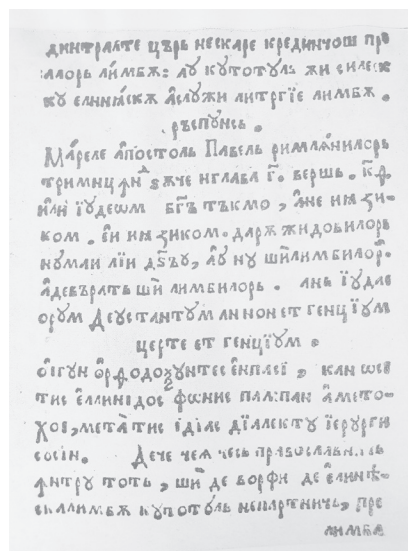 динтралте цѣрь нескаре крединчош про
алорь лимбж: ау кутотуль жи силеск
ку елинѣскѫ аслужи литргїе лимбж.
рѣспунсь.
Мареле апостоль Павель римлѧнилорь
тримицѫн ѕѫче иглава г҃. вершь.
или їудеωм бг҃ъ тъкмо, ане иѧзи-
ком. еи иѧзиком. дарѫ жидовилорь
нумаи лїи дз҃ъу, ау ну ши лимбилор.
адевърать ши лимбилорь. ань їудае
орум Деуестантум аннонет генцїум
церте ет генцїум.
оїгун ѻрѳодоѯунтес енплеї, кан ωев
тис еллинїдос фωнис палпан амето-
хоѳ, мета тис їдїас дїалекту їерурги
сосїн. Дече чеѧ чесь православник
ѫнтру тоть, ши де ворфи де елинѣ-
скалимбж купотуль непартничь, пре
лимба